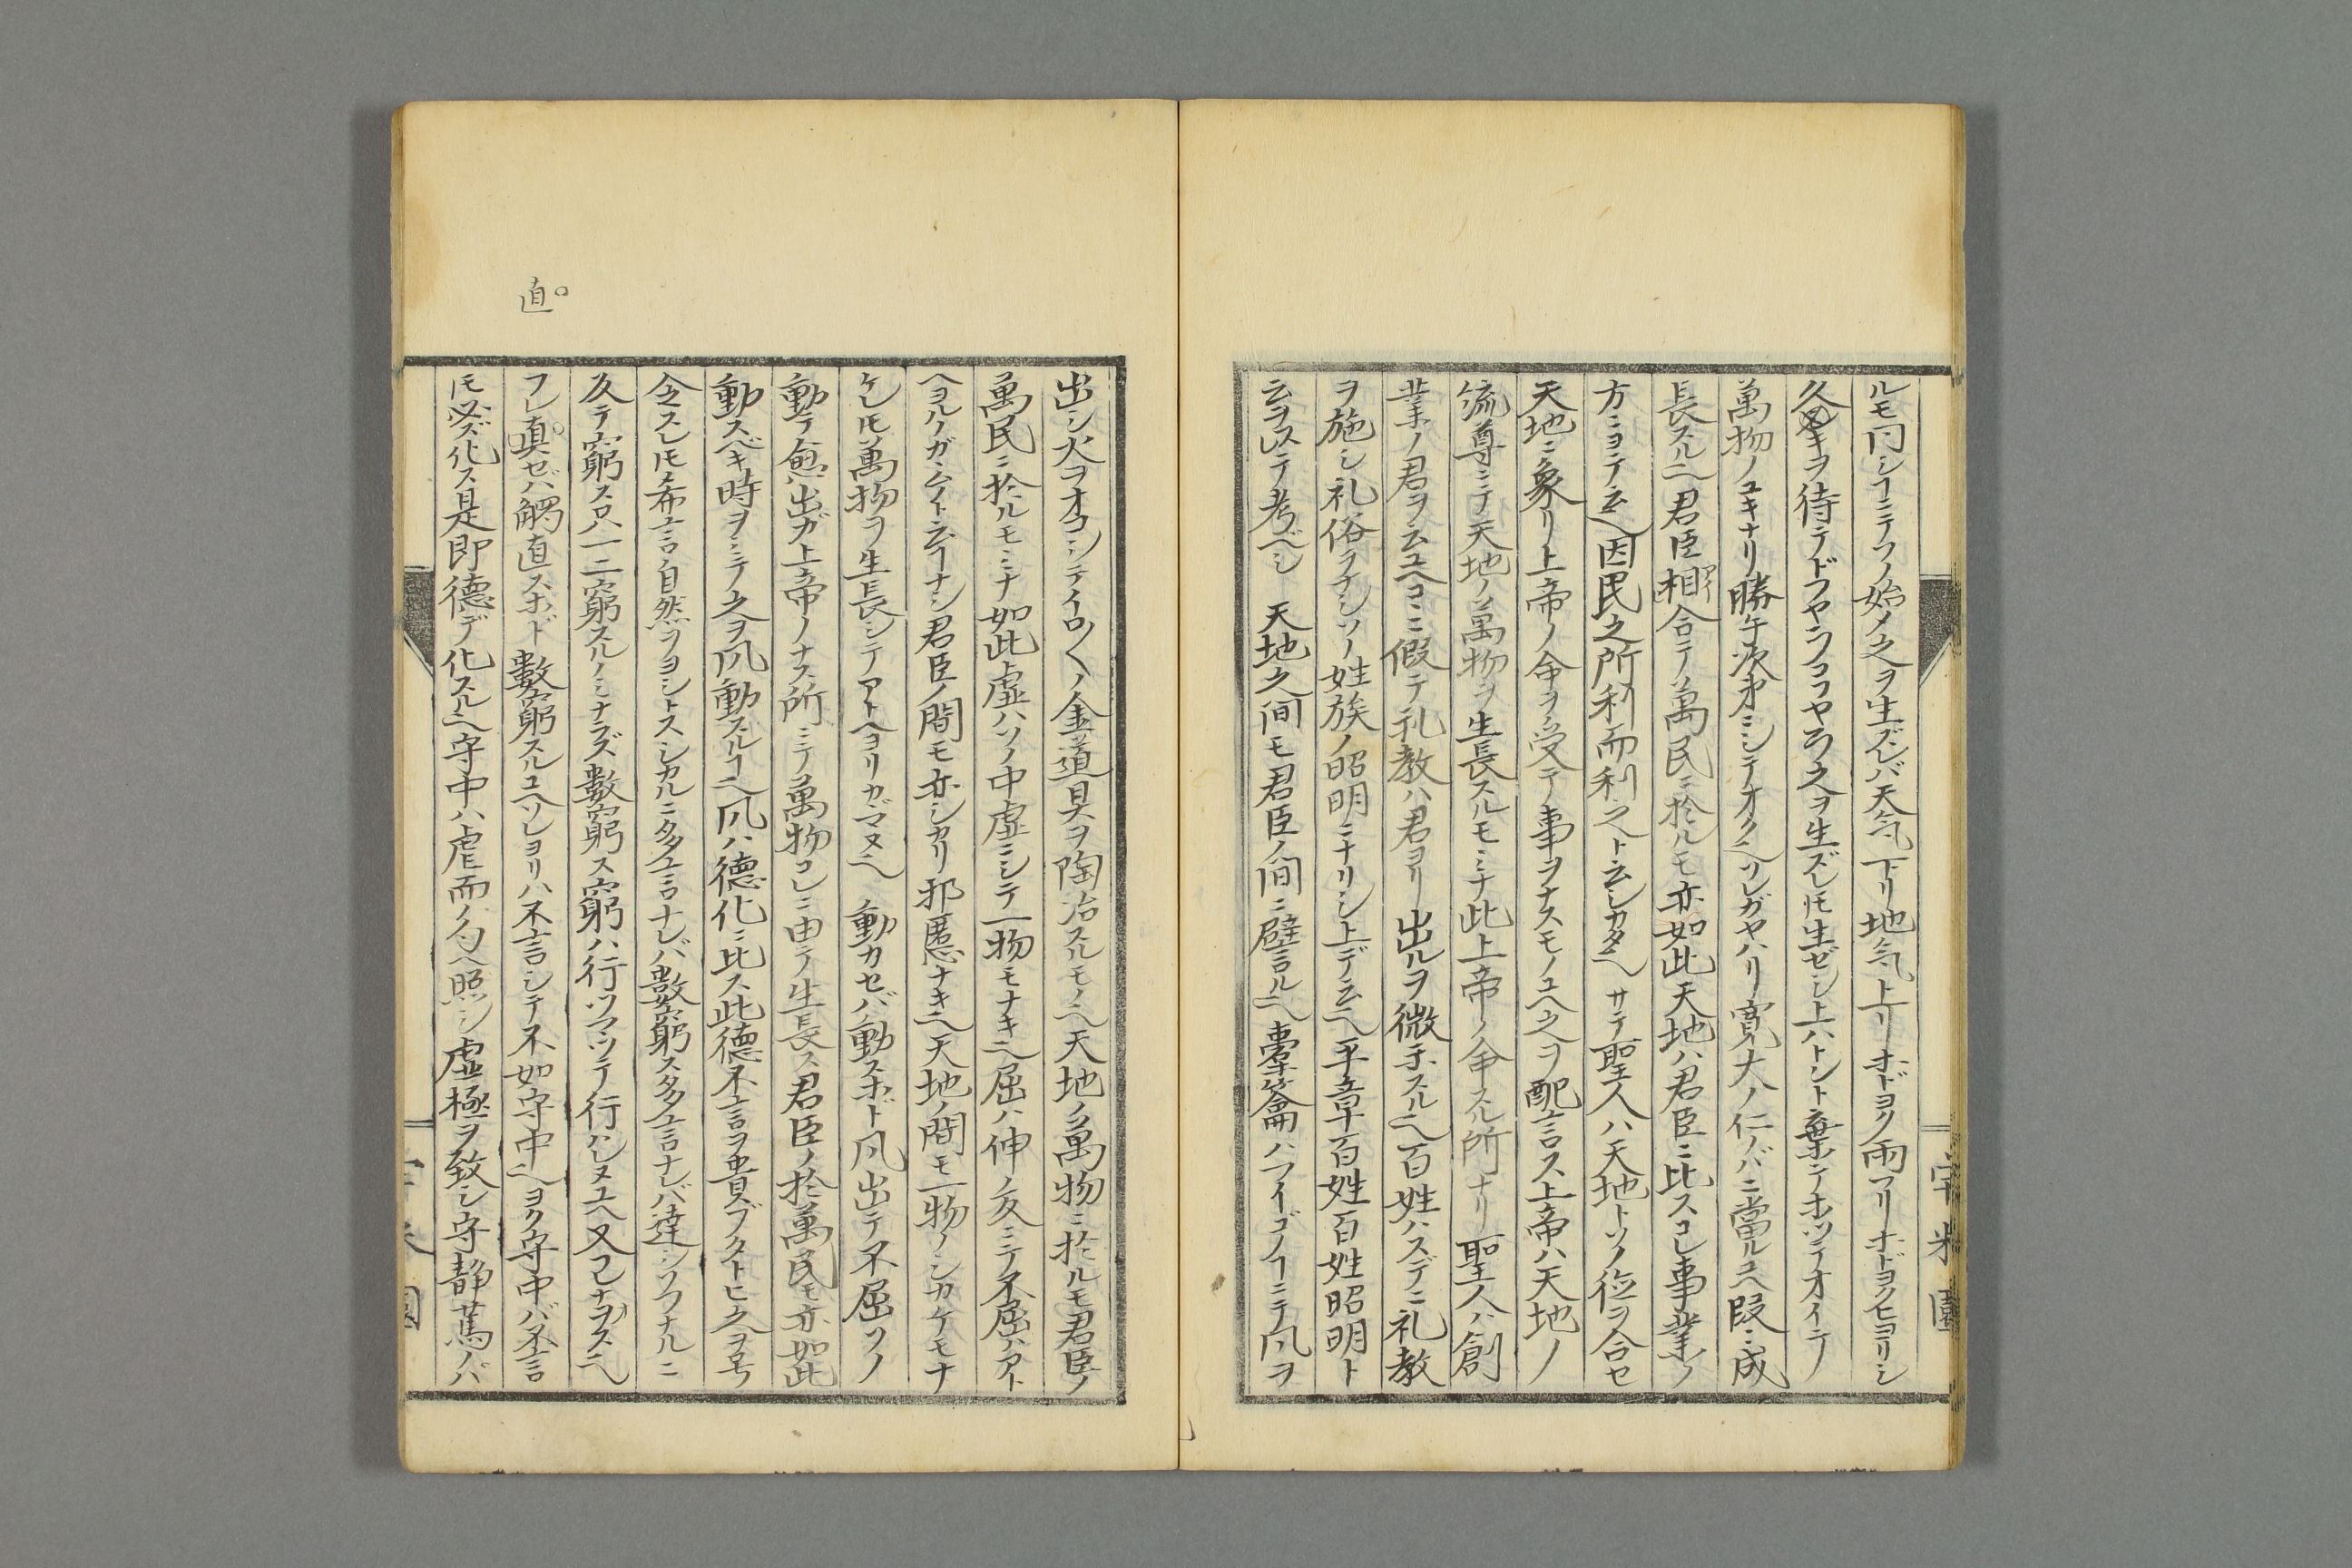 ルモ同シヿニテソノ始メ之ヲ生ズレバ天気下リ地気上リホドヨク雨フリホドヨクヒヨリシ
久キヲ待テドフヤラコフヤラ之ヲ生ズレ𪜈生ゼシ上ハトント棄テホツテオイテ
萬物ノユキナリ勝手次第ニシテオクヘソレガヤハリ寛大ノ仁ノバニ當ルユヘ段々成
長スルヘ君臣相合テ萬民ニ於ルモ亦如此天地ハ君臣ニ比スコレ事業ノ
方ニヨテ云ヘ因民之所利而利之ト云シカタヘ サテ聖人ハ天地トソノ德ヲ合セ
天地ニ象リ上帝ノ命ヲ受テ事ヲナスモノユヘ之ヲ配言ス上帝ハ天地ノ
統尊ニテ天地ノ萬物ヲ生長スルモミナ此上帝ノ命スル所ナリ 聖人ハ創
業ノ君ヲ云ユヘコヽニ假テ礼教ハ君ヨリ出ルヲ微示スルヘ百姓ハスデニ礼教
ヲ施シ礼俗ヲナシソノ姓族ノ昭明ニナリシ上デ云ヘ平章百姓百姓昭明ト
云ヲ以テ考ベシ 天地之间モ君臣ノ间ニ譬ルヘ橐籥ハフイゴノヿニテ風ヲ
出シ火ヲオコシテイロ〱ノ金道具ヲ陶冶スルモノヘ天地ノ萬物ニ於ルモ君臣ノ
萬民ニ於ルモミナ如此虚ハソノ中虚ニシテ一物モナキヘ屈ハ伸ノ反ニテ不屈ハアト
ヘヨルノガナイト云ヿナシ君臣ノ間モ亦シカリ邪慝ナキヘ天地ノ間モ一物ノシカケモナ
ケレ𪜈萬物ヲ生長シテアトヘヨリカヾマヌヘ 動カセバ動スホド風出テ不屈ソノ
動テ愈出ガ上帝ノナス所ニテ萬物コレニ由テ生長ス君臣ノ於萬民モ亦如此
動スベキ時ヲミテ之ヲ風動スルヿヘ風ハ德化ニ比ス此德不言ヲ貴ブタトヒ之ヲ号
令スレ𪜈希言自然ヲヨシトスシカルニ多言ナレバ數窮ス多言ナレバ違シソフナルニ
反テ窮スロハ一二窮スルノミナラズ數窮ス窮ハ行ツマツテ行ハレヌユヘ又フレナヲスヘ
フレ真セバ觸直スホド數窮スルユヘソレヨリハ不言シテ不如守中ヘヨク守中バ不言
𪜈必ズ化ス是即德デ化スルヘ守中ハ虚而ノ句ヘ照シ虚極ヲ致シ守静篤ノバ
直